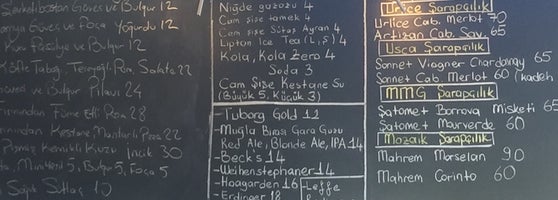 Güveç ve Bulgur 12
ve Poğça Yoğurdu 12
ve Bulgur 12
Köfte Tabağı, Salata 22
ve Bulgur Pilavı 24
Fırınından Füme Etli Pide 28
Fırınından Kestane Mantarlı Pizza 22
Pişmiş Kemikli Kuzu incik 30
5, Bulgur 5,
Sütlaç 10
Niğde gazozu 4
Cam şişe tamek 4
Cam şişe Sütaş Ayran 4
Lipton Ice Tea (L,Ş) 4
Kola, Kola Zero 4
Soda 3
Cam Şişe Kestane Su
(Büyük 5, Küçük 3)
-Tuborg Gold 12
-Muğla Birası Gara Guzu
Red Ale, Blonde Ale, IPA 14
-Beck's 14
-Weihenstephaner 14
-Hoegarden 16
-Leffe
-Erdinger 18
Urlice Şarapçılık
Urlice Cab. Merlot 70
Artizan Cab. Sav. 65
Usca Şarapçılık
Sonnet Viogner Chardonnay 65
Sonnet Cab. Merlot 60 (kadeh
MMG Şarapçılık
Şatomet Bornova Misketi 65
Şatomet Mourverde 60
Mozaik Şarapçılık
Mahrem Morselan 90
Mahrem Corinto 60